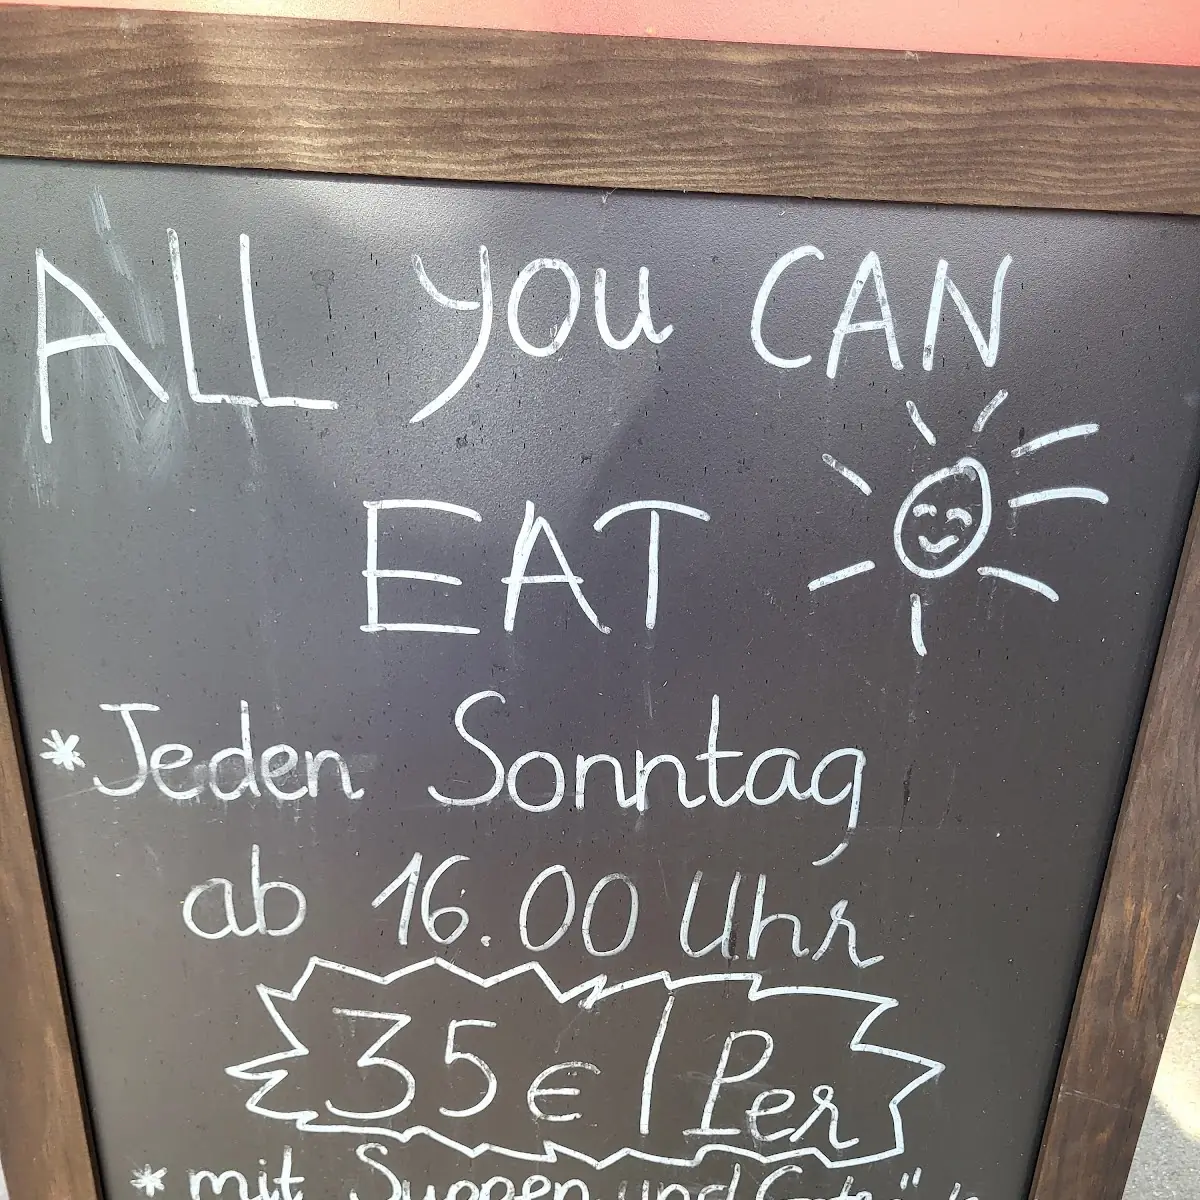 ALL you CAN
EAT
*Jeden Sonntag
ab 16.00 Uhr
35€ | Per
* mit Suppen und